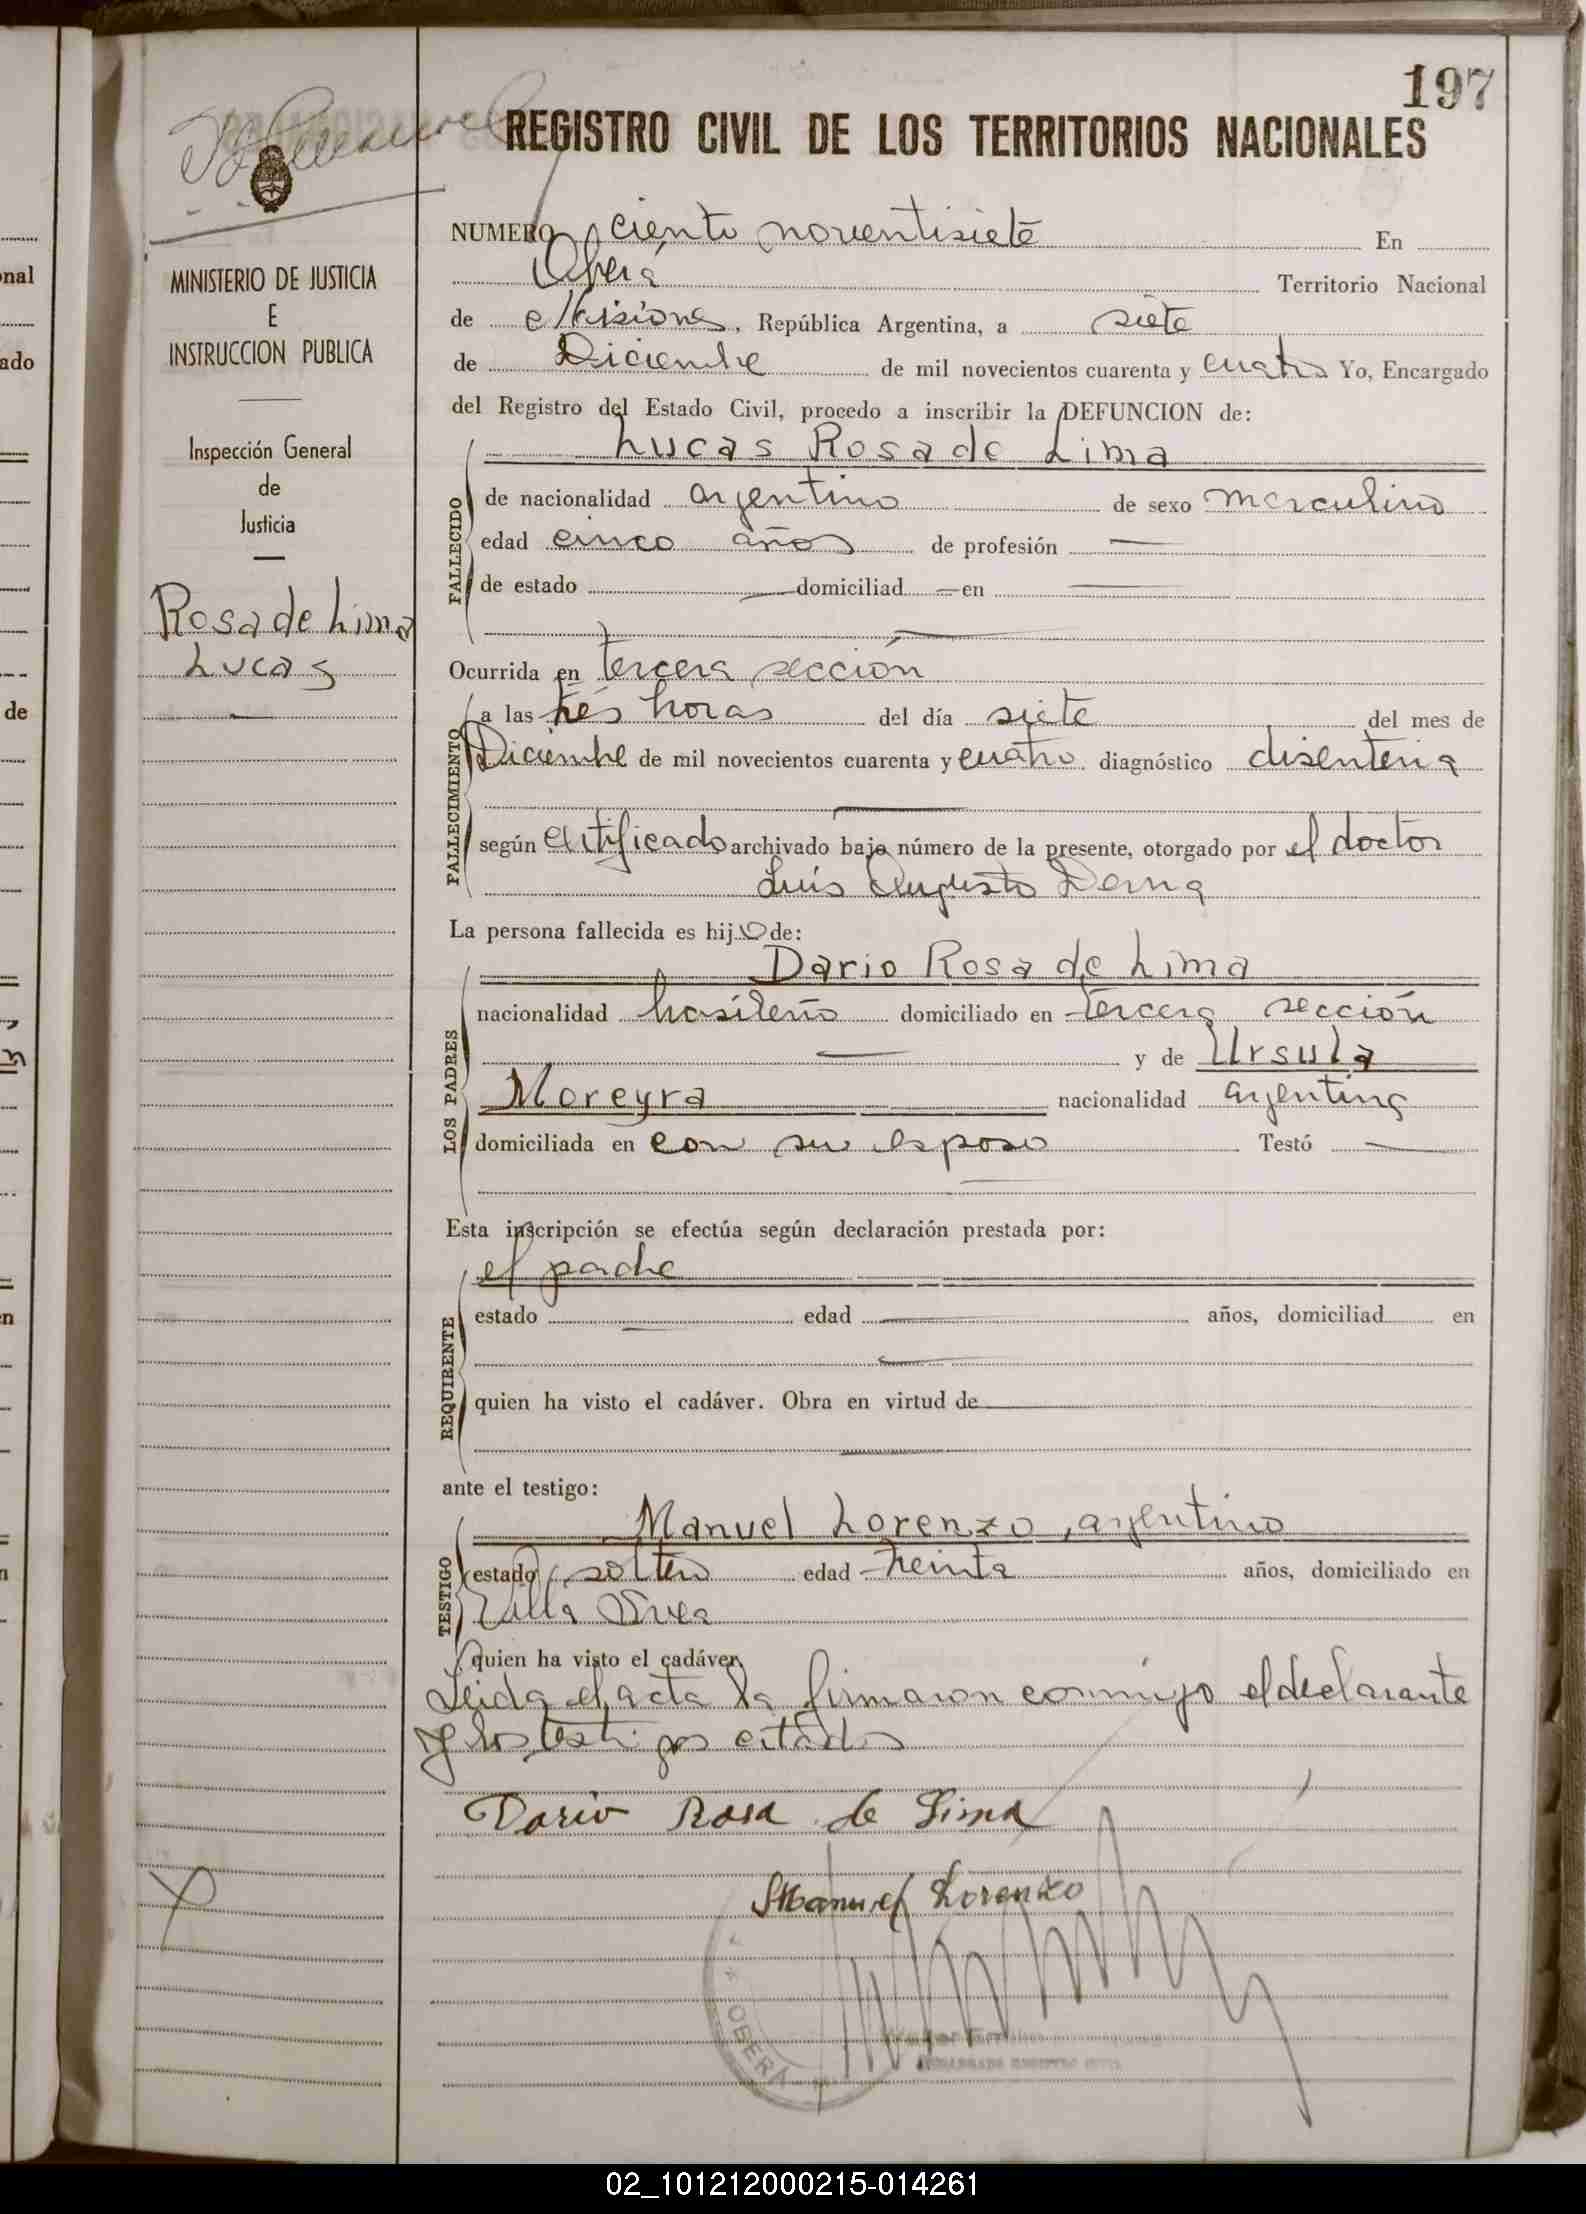 197
REGISTRO CIVIL DE LOS TERRITORIOS NACIONALES
MINISTERIO DE JUSTICIA
E
INSTRUCCION PUBLICA
Inspección General
de
Justicia
Rosa de Lima
Lucas
NUMERO ciento noventisiete En
Oberá Territorio Nacional
de Misiones, República Argentina, a siete
de Diciembre de mil novecientos cuarenta y cuatro Yo, Encargado
del Registro del Estado Civil, procedo a inscribir la DEFUNCION de:
Lucas Rosa de Lima
FALLECIDO
de nacionalidad argentino de sexo masculino
edad cinco años de profesión —
de estado — domiciliad — en —
Ocurrida en tercera sección
FALLECIMIENTO
a las tres horas del día siete del mes de
Diciembre de mil novecientos cuarenta y cuatro diagnóstico disenteria
según certificado archivado bajo número de la presente, otorgado por el doctor
Luis Augusto Derna
La persona fallecida es hijo de:
LOS PADRES
Dario Rosa de Lima
nacionalidad brasileño domiciliado en tercera sección
— y de Ursula
Moreyra nacionalidad argentina
domiciliada en con su esposo Testó —
Esta inscripción se efectúa según declaración prestada por:
REQUIRENTE
el padre
estado — edad — años, domiciliad en
quien ha visto el cadáver. Obra en virtud de
ante el testigo:
TESTIGO
Manuel Lorenzo, argentino
estado soltero edad treinta años, domiciliado en
Villa
quien ha visto el cadáver
Leida el acta la firmaron conmigo el declarante
y los testigos citados
Dario Rosa de Lima
Manuel Lorenzo
OBERA
02_101212000215-014261